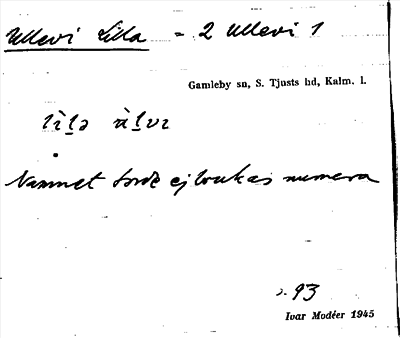 Ullevi Lilla = 2 Ullevi 1
Gamleby sn, S. Tjusts hd, Kalm. l.
Namnet torde ej brukas numera
s. 93
Ivar Modéer 1945